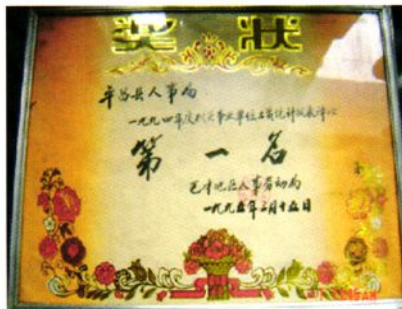 奖状
平昌县人事局
一九九四年度机关事业单位工资统计报表评比
第一名
巴中地区人事劳动局
一九九五年二月十五日